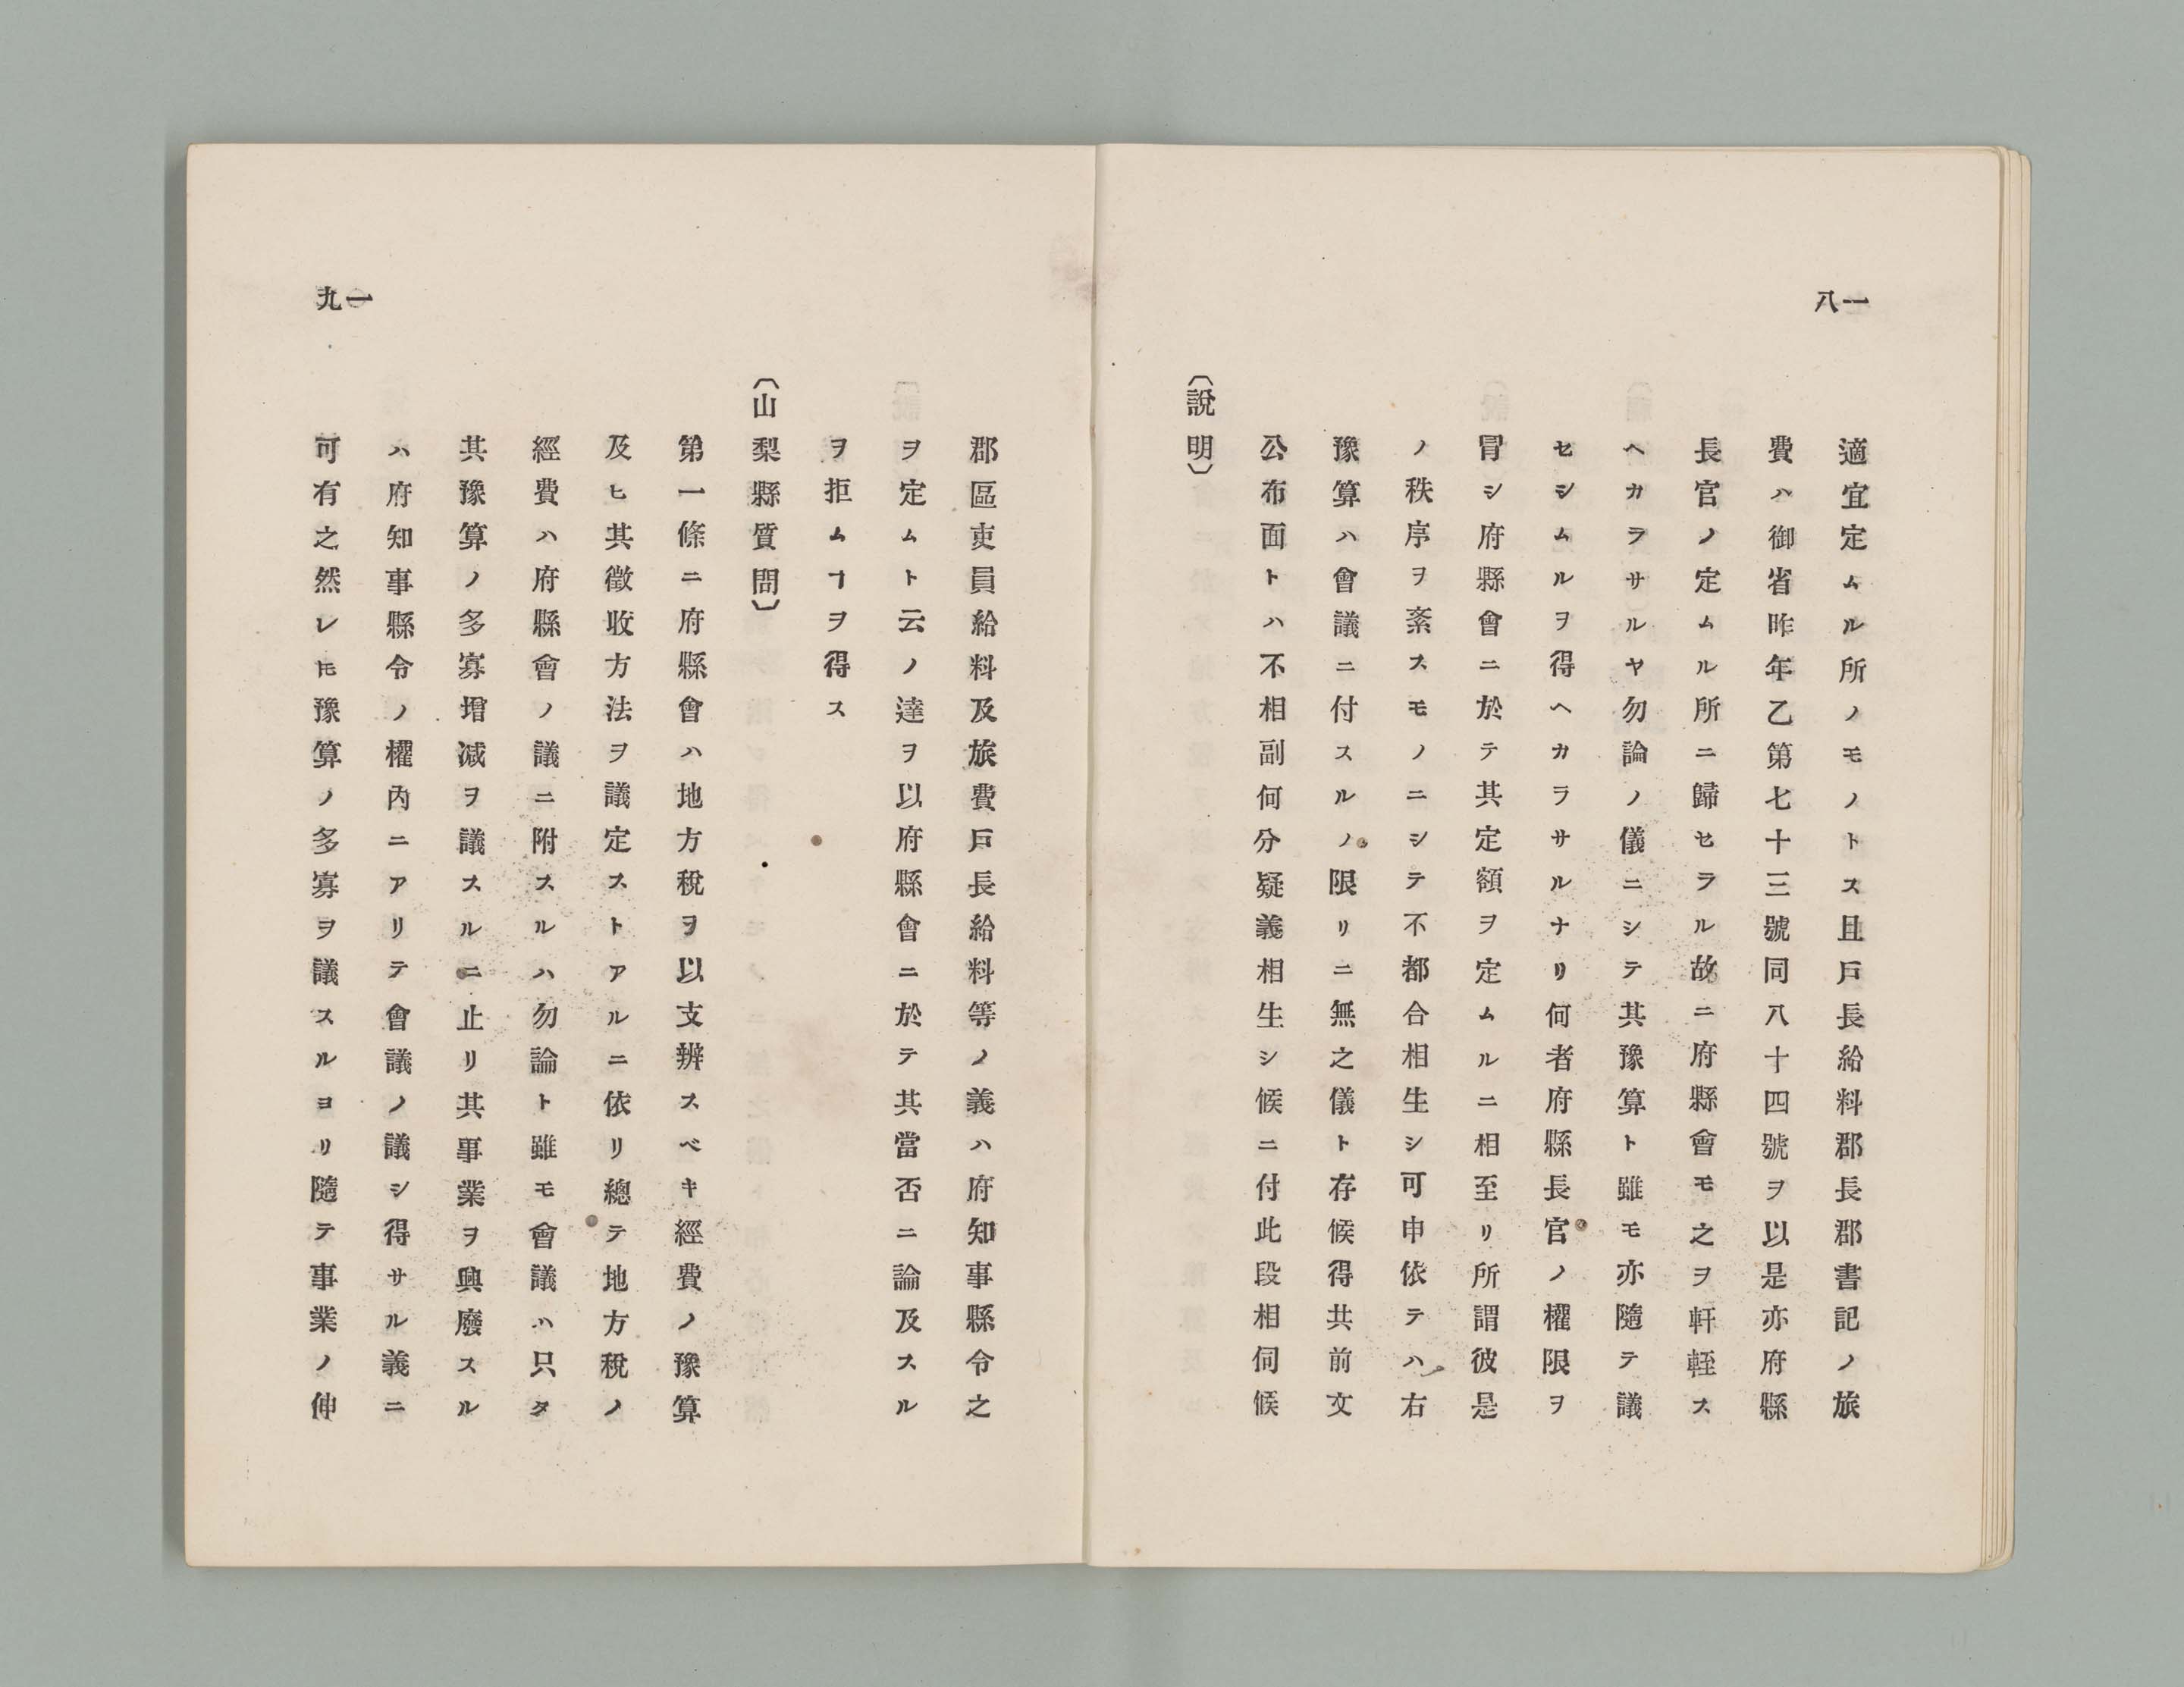 一八
適宜定ムル所ノモノトス且戸長給料郡長郡書記ノ旅
費ハ御省昨年乙第七十三號同八十四號ヲ以是亦府縣
長官ノ定ムル所ニ歸セラル故ニ府縣會モ之ヲ軒輊ス
ヘカラサルヤ勿論ノ儀ニシテ其豫算ト雖モ亦隨テ議
セシムルヲ得ヘカラサルナリ何者府縣長官ノ權限ヲ
冐シ府縣會ニ於テ其定額ヲ定ムルニ相至リ所謂彼是
ノ秩序ヲ紊スモノニシテ不都合相生シ可申依テハ右
豫算ハ會議ニ付スルノ限リニ無之儀ト存候得共前文
公布面トハ不相副何分疑義相生シ候ニ付此段相伺候
〔說明〕
郡區吏員給料及旅費戸長給料等ノ義ハ府知事縣令之
ヲ定ムト云ノ達ヲ以府縣會ニ於テ其當否ニ論及スル
ヲ拒ムヿヲ得ス
〔山梨縣質問〕
第一條ニ府縣會ハ地方稅ヲ以支辨スベキ經費ノ豫算
及ヒ其徵收方法ヲ議定ストアルニ依リ總テ地方稅ノ
經費ハ府縣會ノ議ニ附スルハ勿論ト雖モ會議ハ只タ
其豫算ノ多寡增减ヲ議スルニ止リ其事業ヲ興廢スル
ハ府知事縣令ノ權內ニアリテ會議ノ議シ得サル義ニ
可有之然レ𪜈豫算ノ多寡ヲ議スルヨリ隨テ事業ノ伸
一九